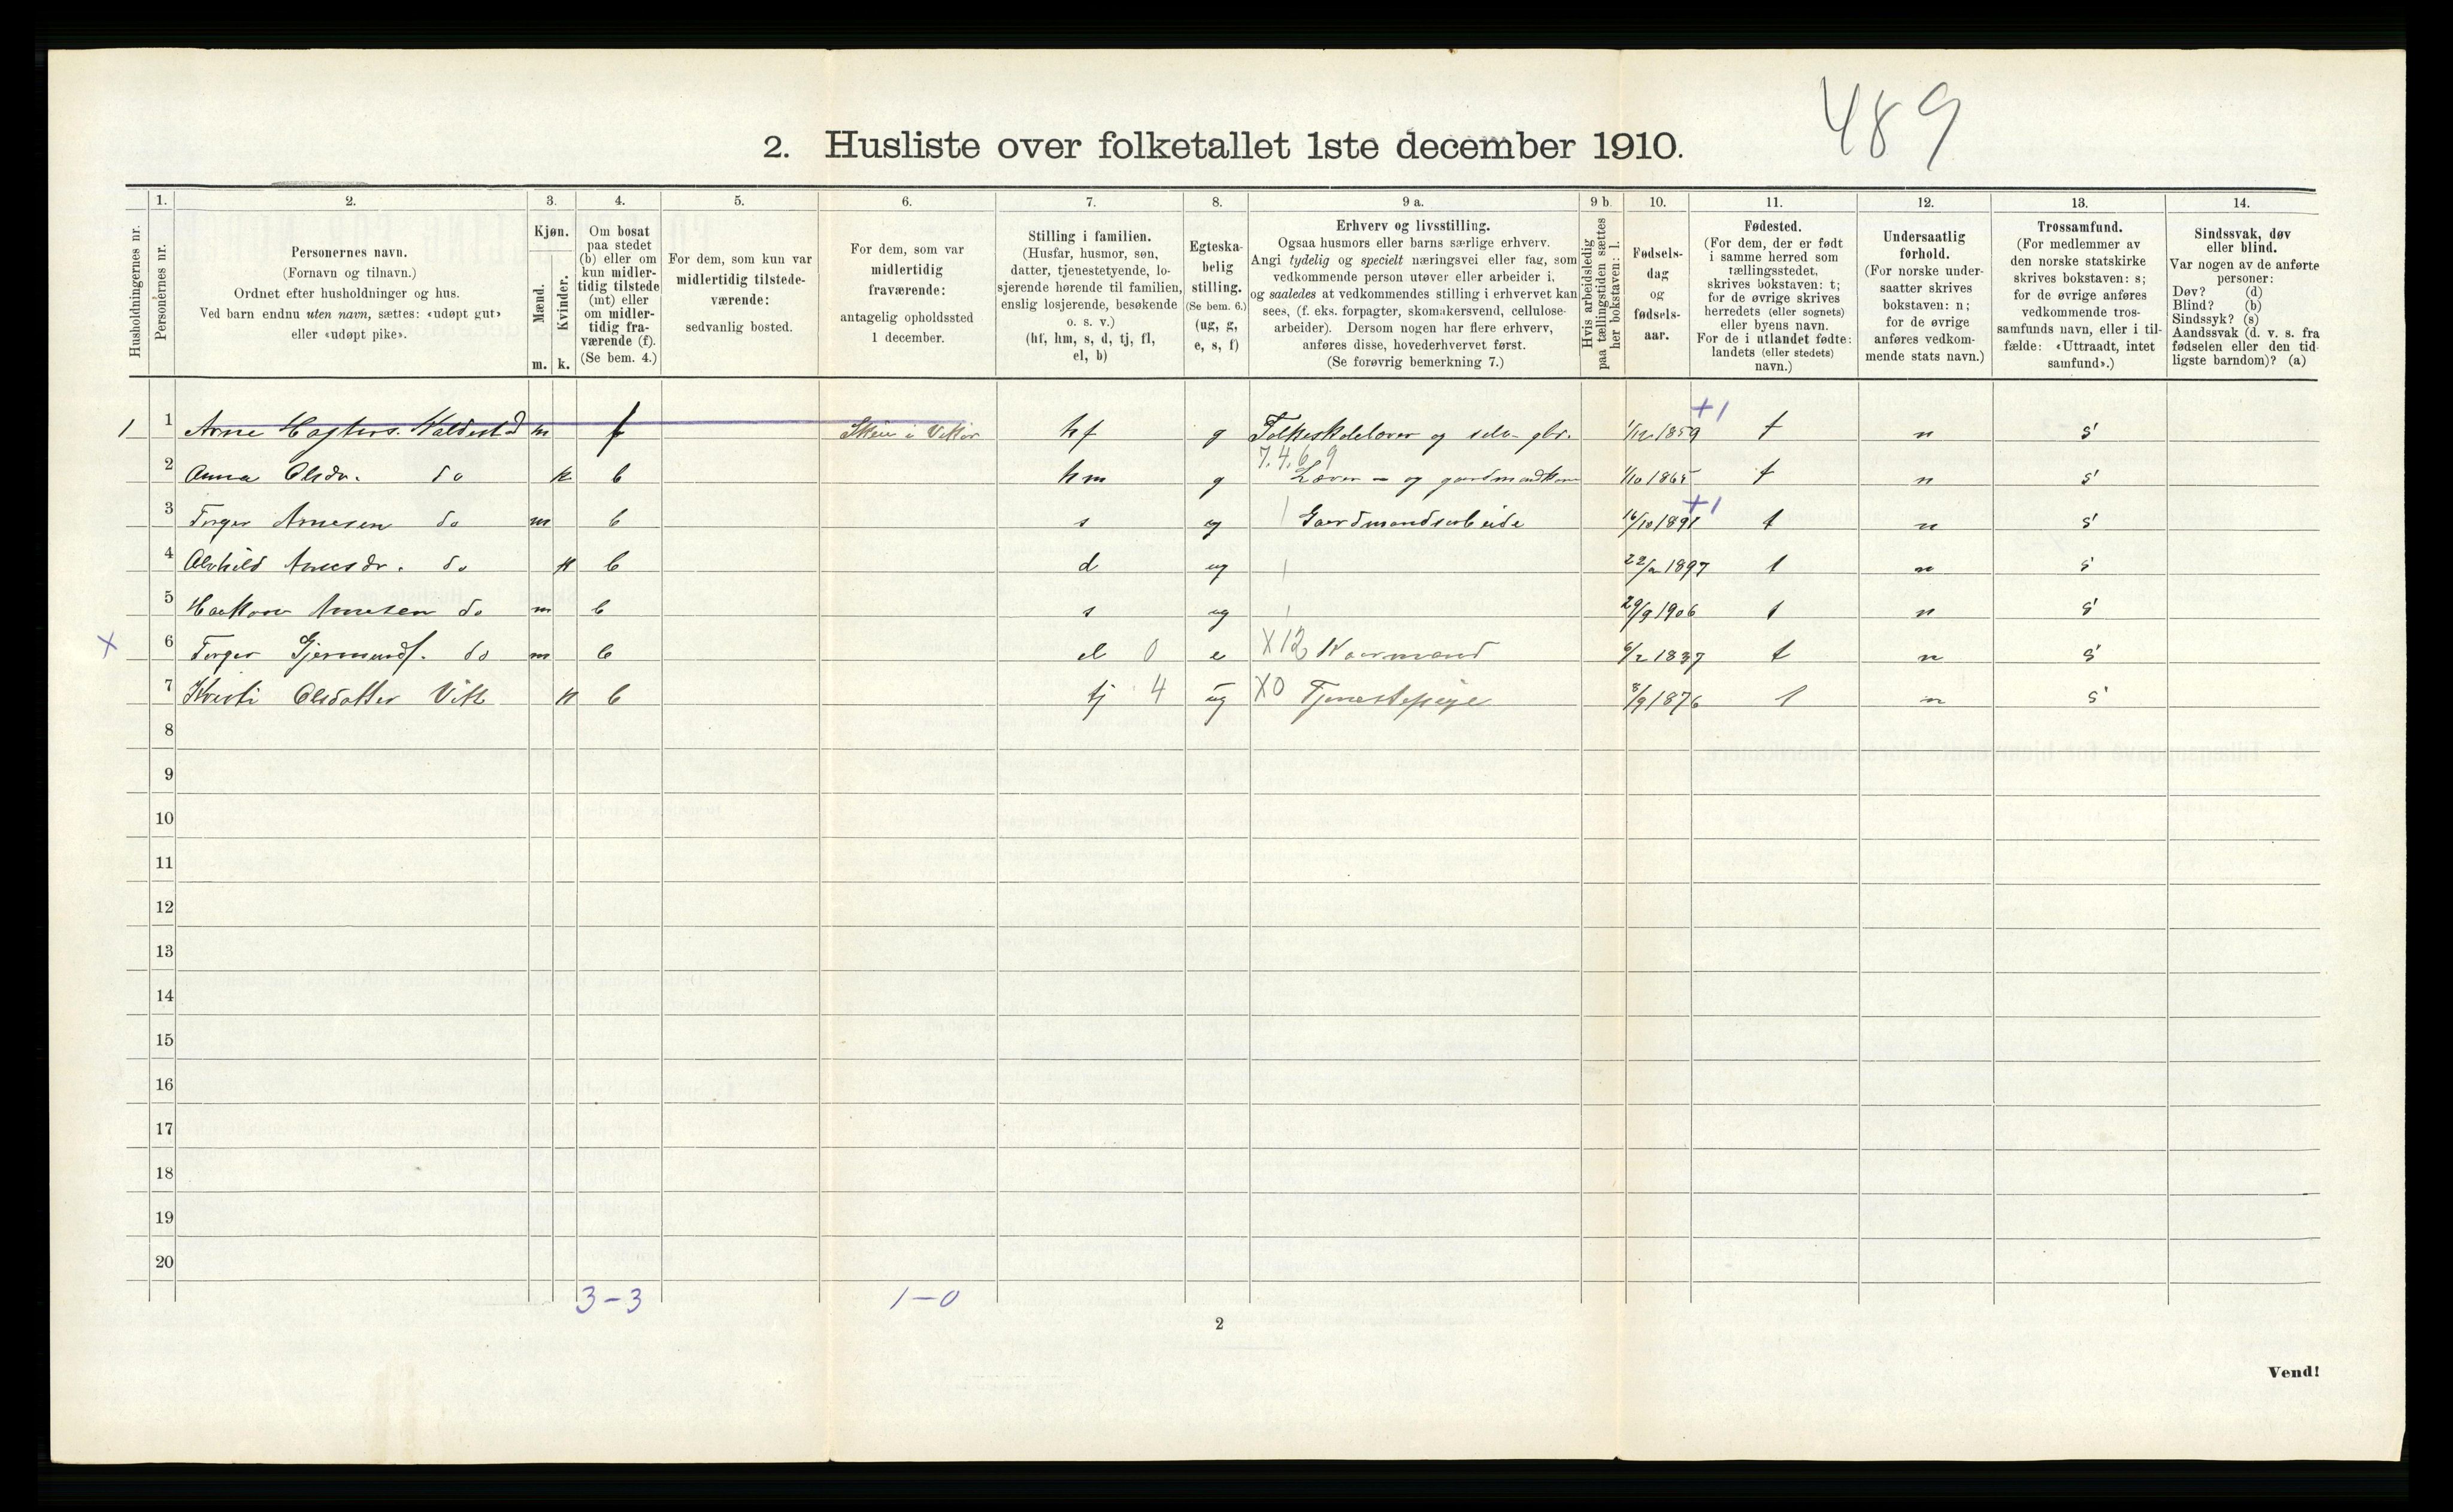 489
2. Husliste over folketallet 1ste december 1910.
Husholdningernes nr.
1.
Personernes nr.
2.
Personernes navn.
(Fornavn og tilnavn.)
Ordnet efter husholdninger og hus.
Ved barn endnu uten navn, sættes: «udøpt gut»
eller «udøpt pike».
3.
Kjøn.
Mænd.
Kvinder.
m. k.
4.
Om bosat
paa stedet
(b) eller om
kun midler-
tidig tilstede
(mt) eller
om midler-
tidig fra-
værende (f).
(Se bem. 4.)
5.
For dem, som kun var
midlertidig tilstede-
værende:
sedvanlig bosted.
6.
For dem, som var
midlertidig
fraværende:
antagelig opholdssted
1 december.
7.
Stilling i familien.
(Husfar, husmor, søn,
datter, tjenestetyende, lo-
sjerende hørende til familien,
enslig losjerende, besøkende
o. s. v.)
(hf, hm, s, d, tj, fl,
el, b)
8.
Egteska-
belig
stilling.
(Se bem. 6.)
(ug, g,
e, s, f)
9 a.
Erhverv og livsstilling.
Ogsaa husmors eller barns særlige erhverv.
Angi tydelig og specielt næringsvei eller fag, som
vedkommende person utøver eller arbeider i,
og saaledes at vedkommendes stilling i erhvervet kan
sees, (f. eks. forpagter, skomakersvend, cellulose-
arbeider). Dersom nogen har flere erhverv,
anføres disse, hovederhvervet først.
(Se forøvrig bemerkning 7.)
9 b.
Hvis arbeidsledig
paa tællingstiden sættes
her bokstaven: l.
10.
Fødsels-
dag
og
fødsels-
aar.
11.
Fødested.
(For dem, der er født
i samme herred som
tællingsstedet,
skrives bokstaven: t;
for de øvrige skrives
herredets (eller sognets)
eller byens navn.
For de i utlandet fødte:
landets (eller stedets)
navn.)
12.
Undersaatlig
forhold.
(For norske under-
saatter skrives
bokstaven: n;
for de øvrige
anføres vedkom-
mende stats navn.)
13.
Trossamfund.
(For medlemmer av
den norske statskirke
skrives bokstaven: s;
for de øvrige anføres
vedkommende tros-
samfunds navn, eller i til-
fælde: «Uttraadt, intet
samfund».)
14.
Sindssvak, døv
eller blind.
Var nogen av de anførte
personer:
Døv? (d)
Blind? (b)
Sindssyk? (s)
Aandssvak (d. v. s. fra
fødselen eller den tid-
ligste barndom)? (a)
+1
1 1 Arne m f hf g Folkeskolelærer og selv- gbr. 1/12 1859 t n s
7.4.6.9
2 Anna Olsdr. do k b hm g Lærer- og 1/10 1865 t n s
+1
3 Torger Arnesen do m b s ug Gaardmandsarbeide 16/10 1891 t n s
4 Alvhild Arnesdr. do k b d ug 1897 t n s
5 Haakon Arnesen do m b s ug 29/9 1906 t n s
x 6 Torger Gjermunds. do m b el 0 e X12 Kaarmand 6/2 1837 t n s
7 Kristi Olsdatter Vik k b tj 4 ug X0 Tjenestepige 8/9 1876 t n s
8
9
10
11
12
13
14
15
16
17
18
19
20
3-3 1-0
2
Vend!